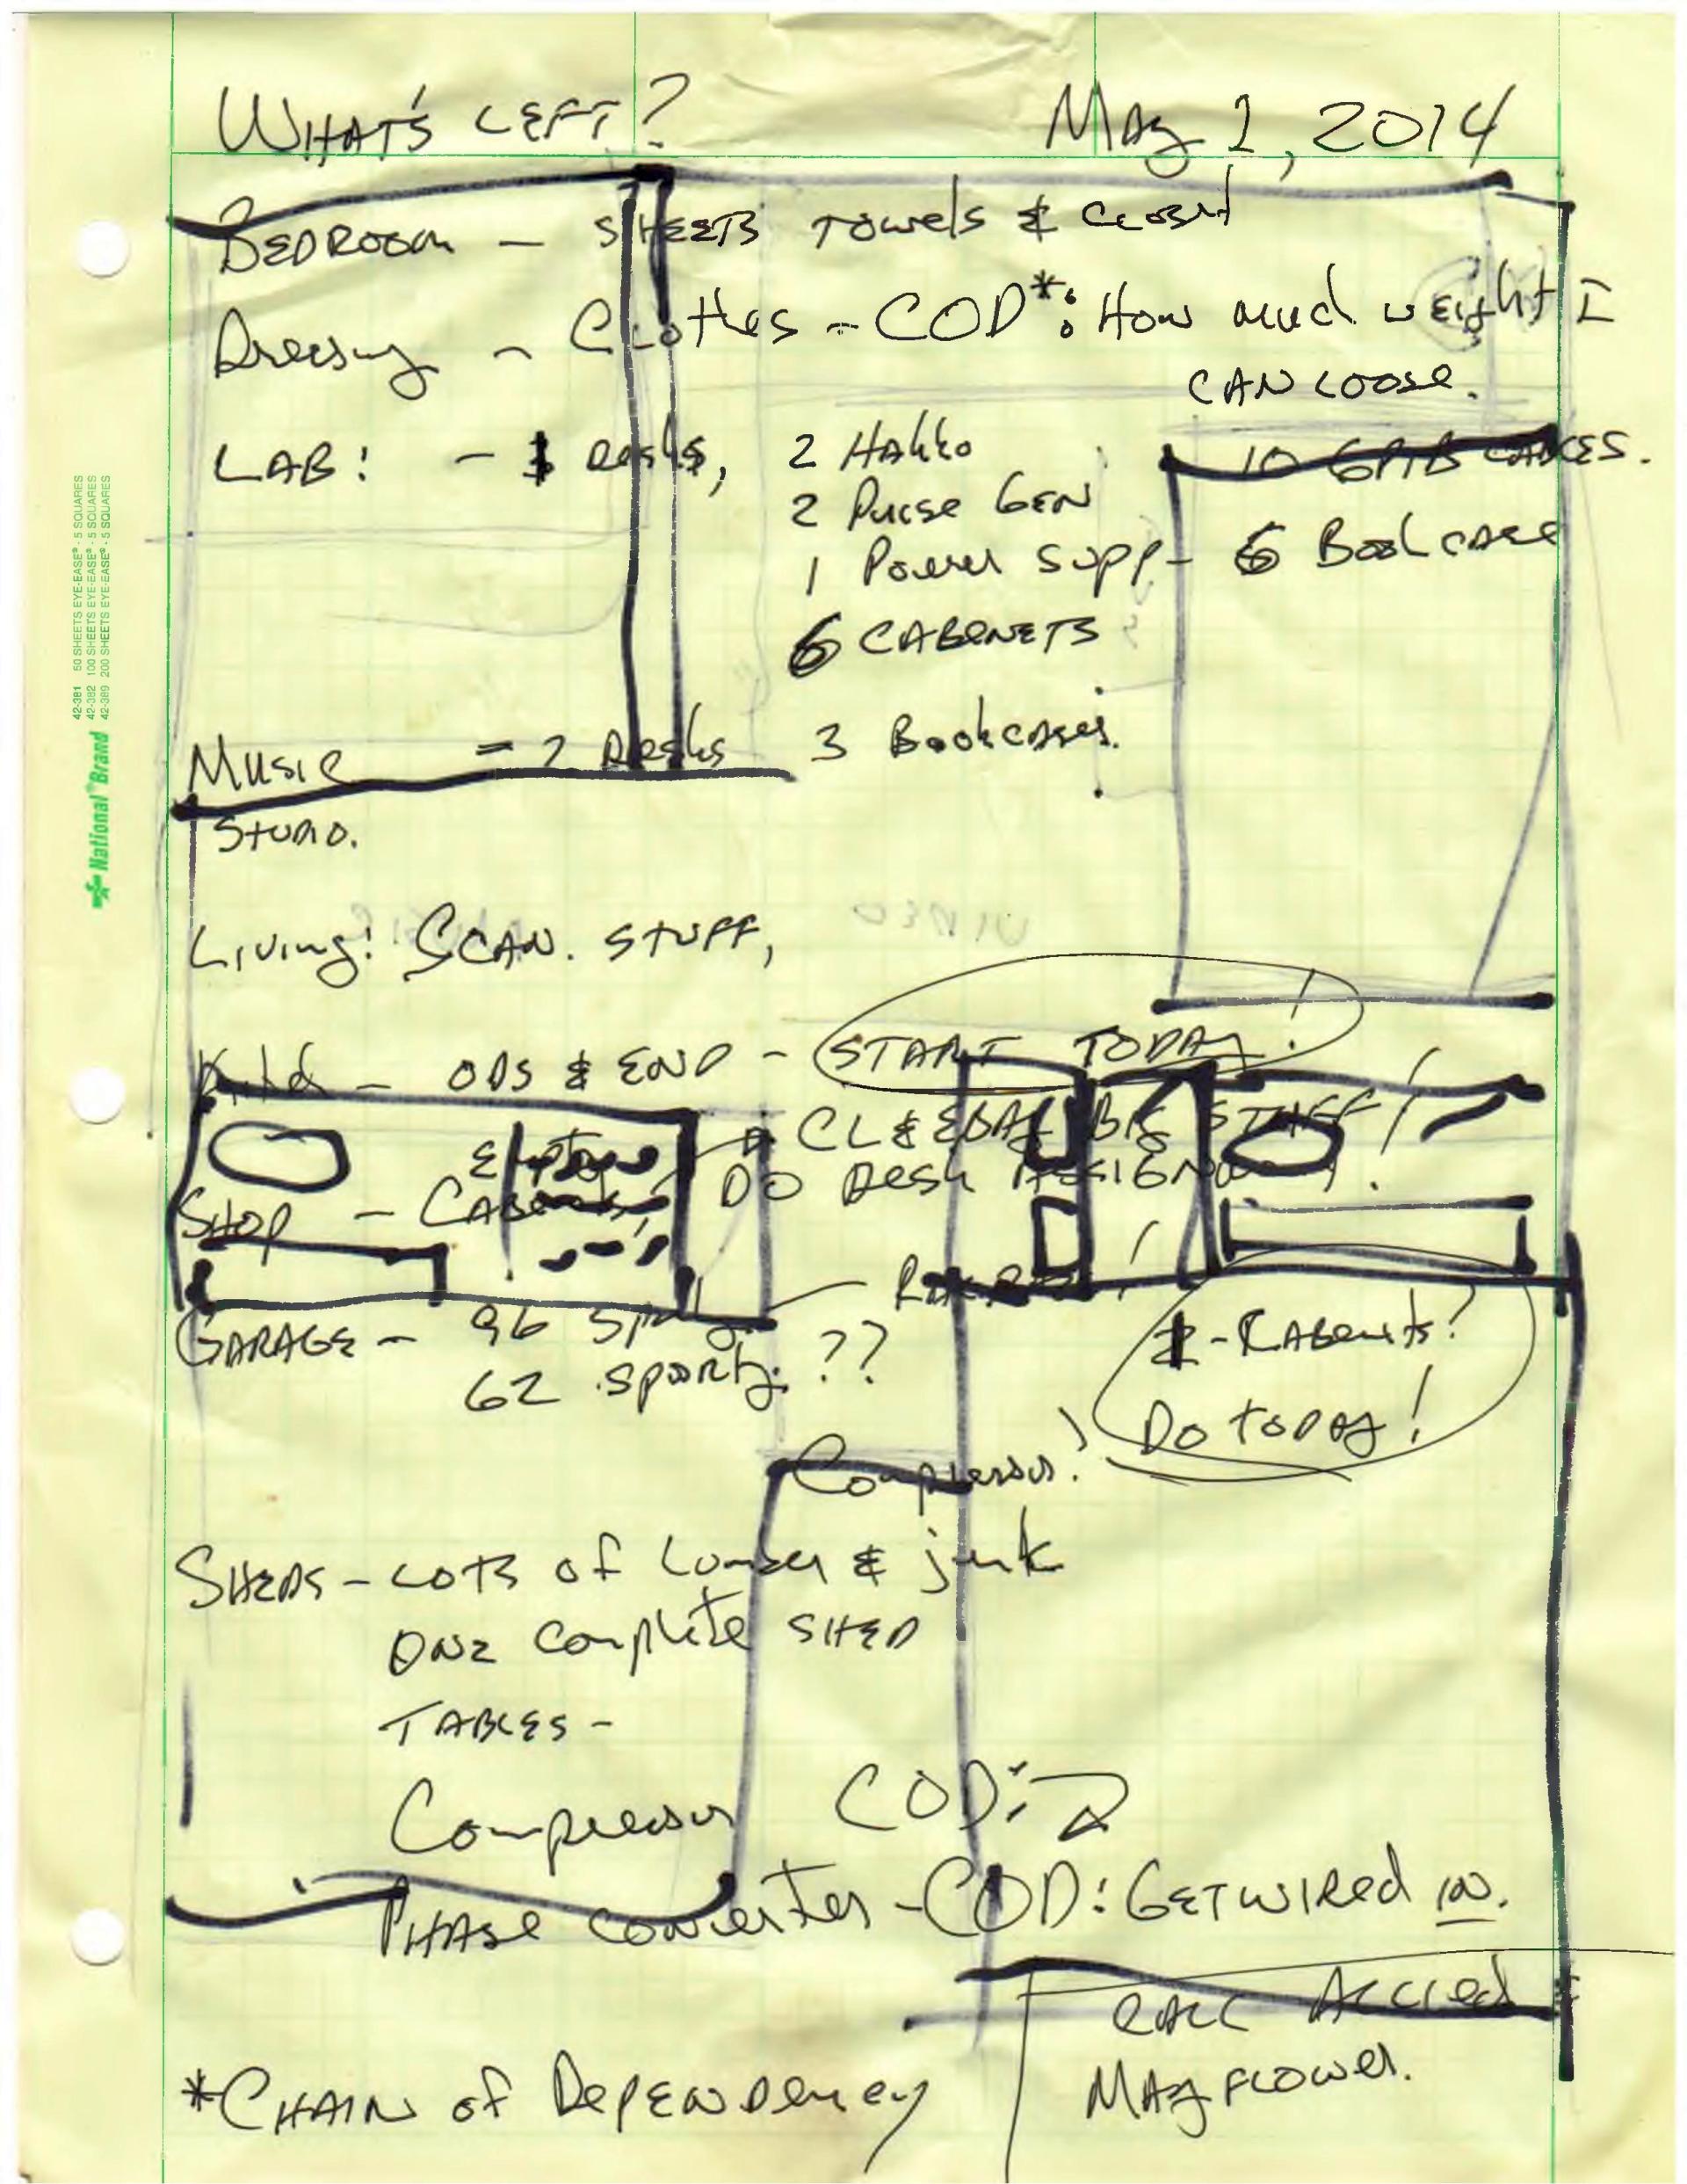 WHAT'S LEFT? May 1, 2014
BEDROOM - SHEETS TOWELS & CLOSET
Dressing - Clothes - COD*: How much weight I
CAN LOOSE.
LAB: - desks, 2 HAKKO 10 GPIB CABLES.
2 Pulse GEN
1 Power Supp- 6 Bookcase
6 CABENETS
MUSIC = 2 Desks 3 Bookcases.
STUDIO.
Living: SCAN. STUFF,
ODS & END - START TODAY!
Empty CL& BIG STUFF!
SHOP - Cabenets, DO Desk
GARAGE - 96
62 Sporty. ??
DO TODAY!
Compressor!
SHEDS - LOTS of Lumber & junk
ONE complete SHED
TABLES -
Compressor COD:
PHASE converter - COD: GET WIRED IN.
CALL Allied
MAYFLOWER.
*CHAIN of DEPENDENCY
42-381 50 SHEETS EYE-EASE® - 5 SQUARES
42-382 100 SHEETS EYE-EASE® - 5 SQUARES
42-389 200 SHEETS EYE-EASE® - 5 SQUARES
National®Brand